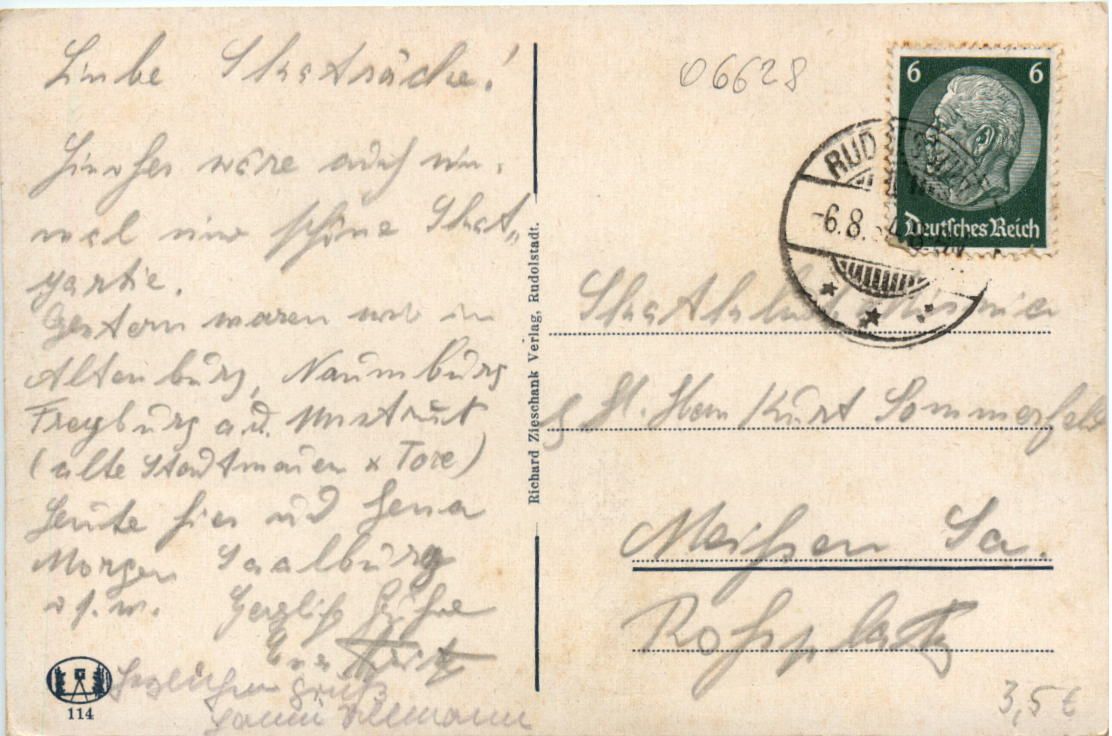 Liebe Skatbrüder!
Hier wäre auch ein-
mal eine schöne Skat„
partie.
Gestern waren wir in
Altenburg, Naumburg
Freyburg a.d. Unstrut
(alte Stadtmauern x Tore)
Heute hier und Jena
Morgen Saalburg
u.s.w. Herzliche Grüße
Herzlichen Gruß
114
Richard Zieschank Verlag, Rudolstadt.
06628
6 6
Deutsches Reich
RUDOLSTADT
-6.8.
Skatklub
Herrn Kurt Sommerfeld
Meißen Sa.
Roßplatz
3,5 €